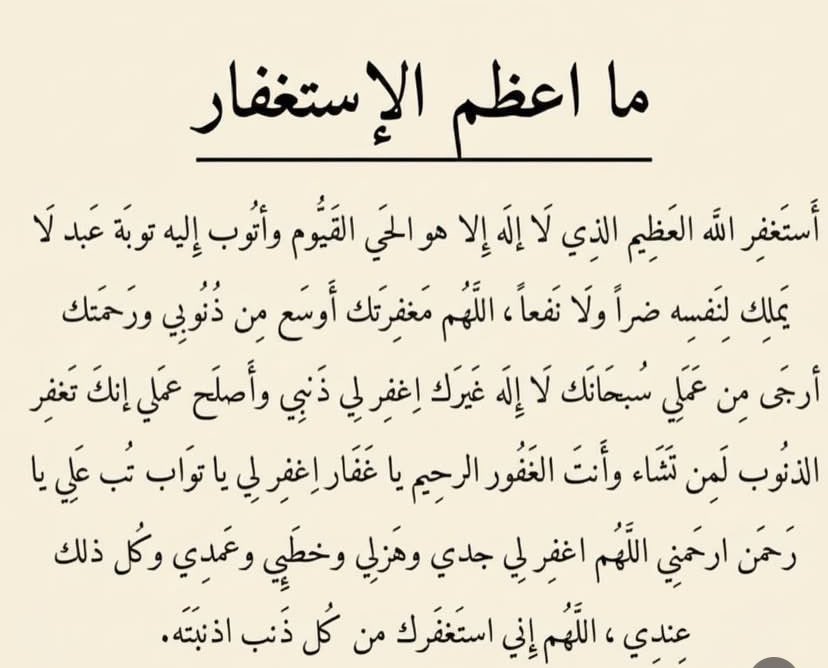 ما اعظم الإستغفار
أَستَغفِر اللَّه العَظِيم الذِي لَا إِلَه إِلا هو الحَي القَيُّوم وأتُوب إِليه توبَة عَبد لَا
يَملِك لِنَفسِه ضراً ولَا نَفعاً، اللَّهُم مَغفِرَتك أَوسَع مِن ذُنُوبِي ورَحمَتك
أرجَى مِن عَمَلِي سُبحَانَك لَا إِلَه غَيرَك اِغفِر لِي ذَنبِي وأَصلَح عمَلي إنكَ تَغفِر
الذنُوب لَمِن تَشَاء وأَنتَ الغَفُور الرحِيم يا غَفَار اِغفِر لِي يا توَاب تُب عَلِي يا
رَحمَن ارحَمنِي اللَّهُم اغفِر لِي جدي وهَزلِي وخطَإِيي وعَمدِي وكُل ذلك
عِندِي ، اللَّهُم إِني استَغفَرك من كُل ذَنب اذنبَتَه.